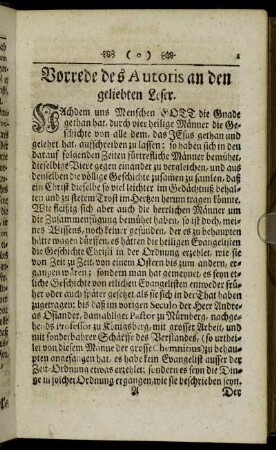 ( o ) 1
Vorrede des Autoris an den
geliebten Leser.
NAchdem uns Menschen GOTT die Gnade
gethan hat, durch vier heilige Männer die Ge-
schichte von alle dem, das JEsus gethan und
gelehrt hat, aufschreiben zu lassen; so haben sich in den
darauf folgenden Zeiten fürtrefliche Männer bemühet,
dieselbige Viere gegen einander zu vergleichen, und aus
denselben die völlige Geschichte zusamen zu samlen, daß
ein Christ dieselbe so viel leichter im Gedächtniß behal-
ten und zu stetem Trost im Hertzen herum tragen könnte.
Wie fleißig sich aber auch die herrlichen Männer um
die Zusammenfügung bemühet haben, so ist doch, mei-
nes Wissens, noch keiner gefunden, der es zu behaupten
hätte wagen dürffen, es hätten die heiligen Evangelisten
die Geschichte Christi in der Ordnung erzehlet, wie sie
von Zeit zu Zeit, von einem Ostern bis zum andern, er-
gangen wären; sondern man hat gemeynet, es seyn et-
liche Geschichte von etlichen Evangelisten entweder frü-
her oder auch später erzehlet als sie sich in der That haben
zugetragen; bis daß im vorigen Seculo der Herr Andre-
as Osiander, damahliger Pastor zu Nürnberg, nachge-
hends Professor zu Königsberg, mit grosser Arbeit, und
mit sonderbahrer Schärffe des Verstandes, (so urthei-
let von diesem Manne der grosse Chemnitius) zu behau-
pten angefangen hat, es habe kein Evangelist ausser der
Zeit-Ordnung etwas erzehlet; sondern es seyn die Din-
ge in solcher Ordnung ergangen, wie sie beschrieben seyn.
A Der